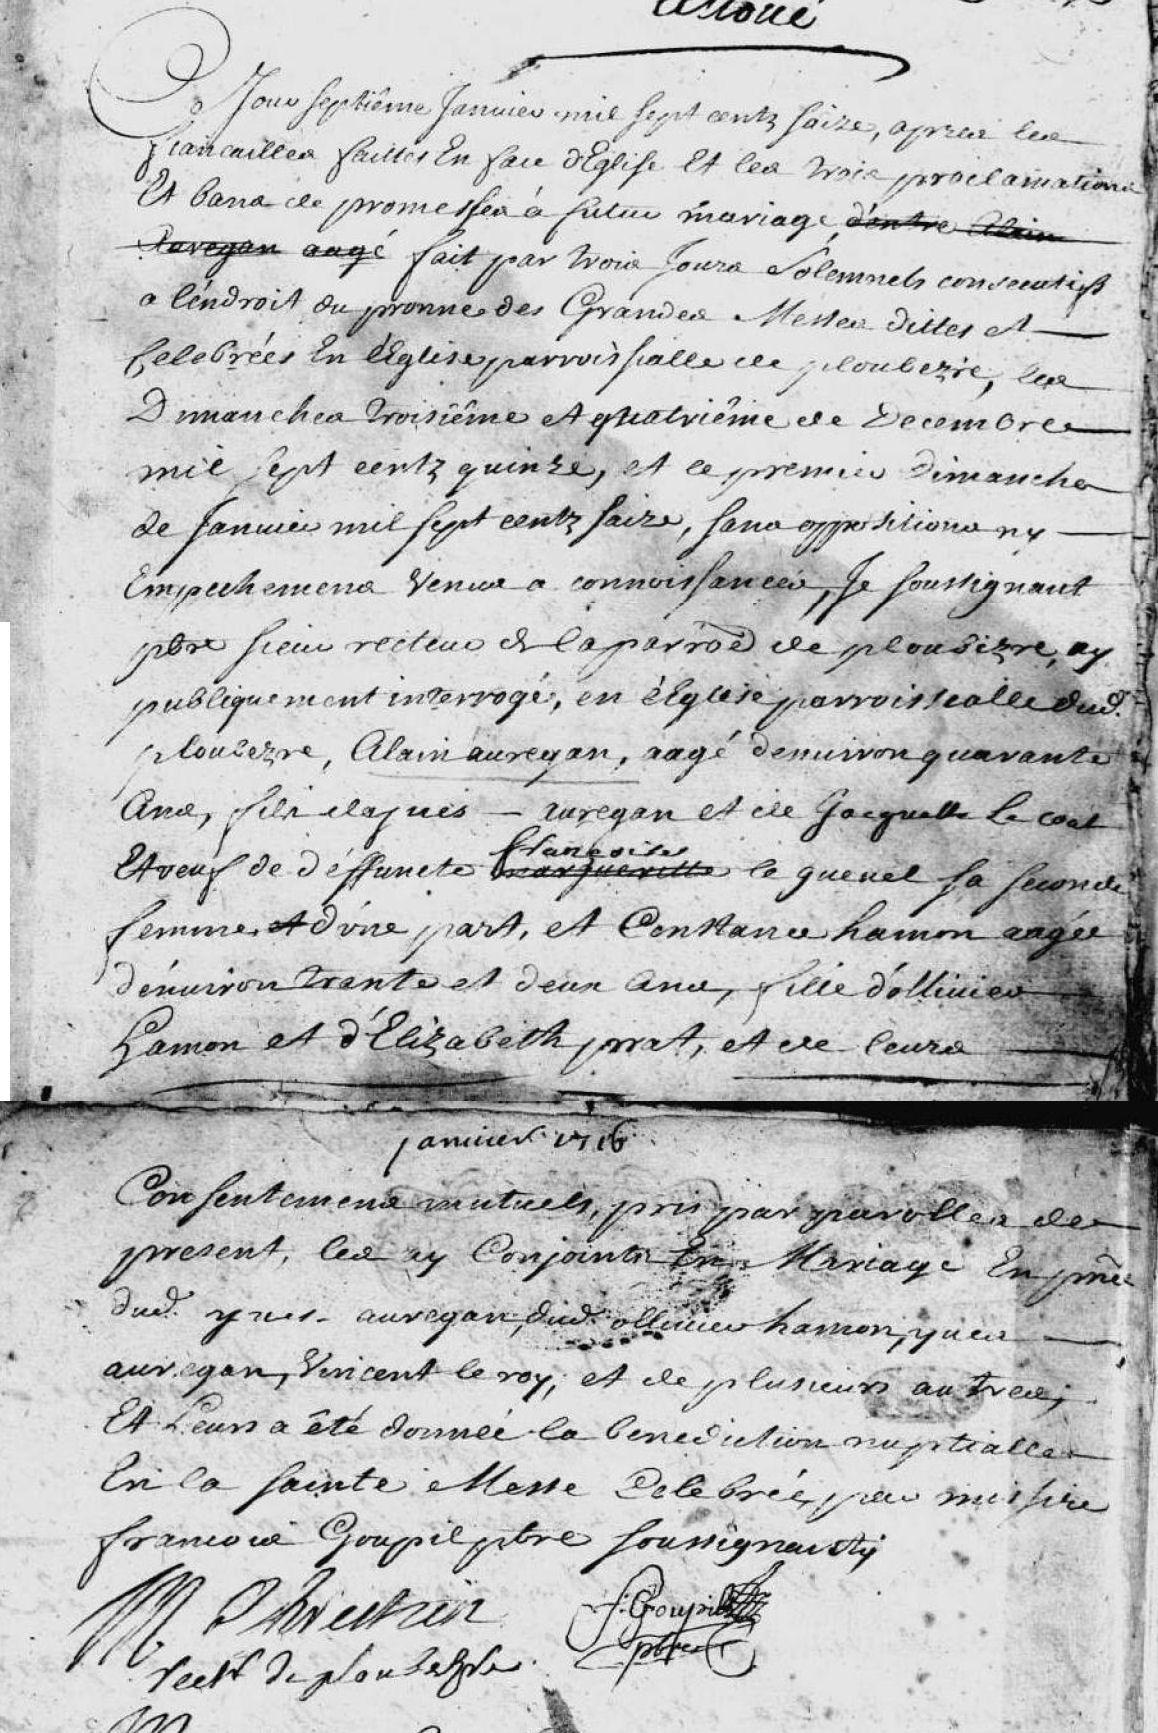 Ce Jour septiême Janvier mil sept centz saize, apres les
fiancailles faittes En face d'Eglise Et les trois proclamations
Et bans de promesses à futur mariage, d'entre Alain
auregan aagé fait par trois Jours Solemnels consecutifs
a l'éndroit du pronne des Grandes Messes dittes et
Celebrées En l'Eglise parroissialle de ploubezre, les
Dimanches troisiême et quatriême de Decembre
mil sept centz quinze, et le premier dimanche
de Janvier mil sept centz saize, sans oppositions ny
Empechemens venus a connoissance, Je soussignant
pbre sieur recteur de la parroë de ploubezre, ay
publiquement interrogé, en l'Eglise parroissialle dud.
ploubezre, Alain auregan, aagé d'environ quarante
Ans, fils d'yves auregan et de Jacquette Le coat
Et veuf de déffuncte francoise margueritte le guenel sa seconde
femme et d'une part, et Constance hamon aagée
d'énviron trante et deux ans, fille d'ollivier
hamon et d'Elizabeth prat, et de leurs
janvier 1716
Consentemens mutuels, pris par parolles de
present, les ay Conjoints En Mariage En pnce
dud. yves auregan, dud. ollivier hamon, yves
auregan, Vincent le roy, et de plusieurs autres;
Et Leurs a êté donnée la benediction nuptialle
En la sainte Messe Celebrée par missire
francois Goupil pbre soussignant
f. Goupil
pbre
rectr de ploubezre